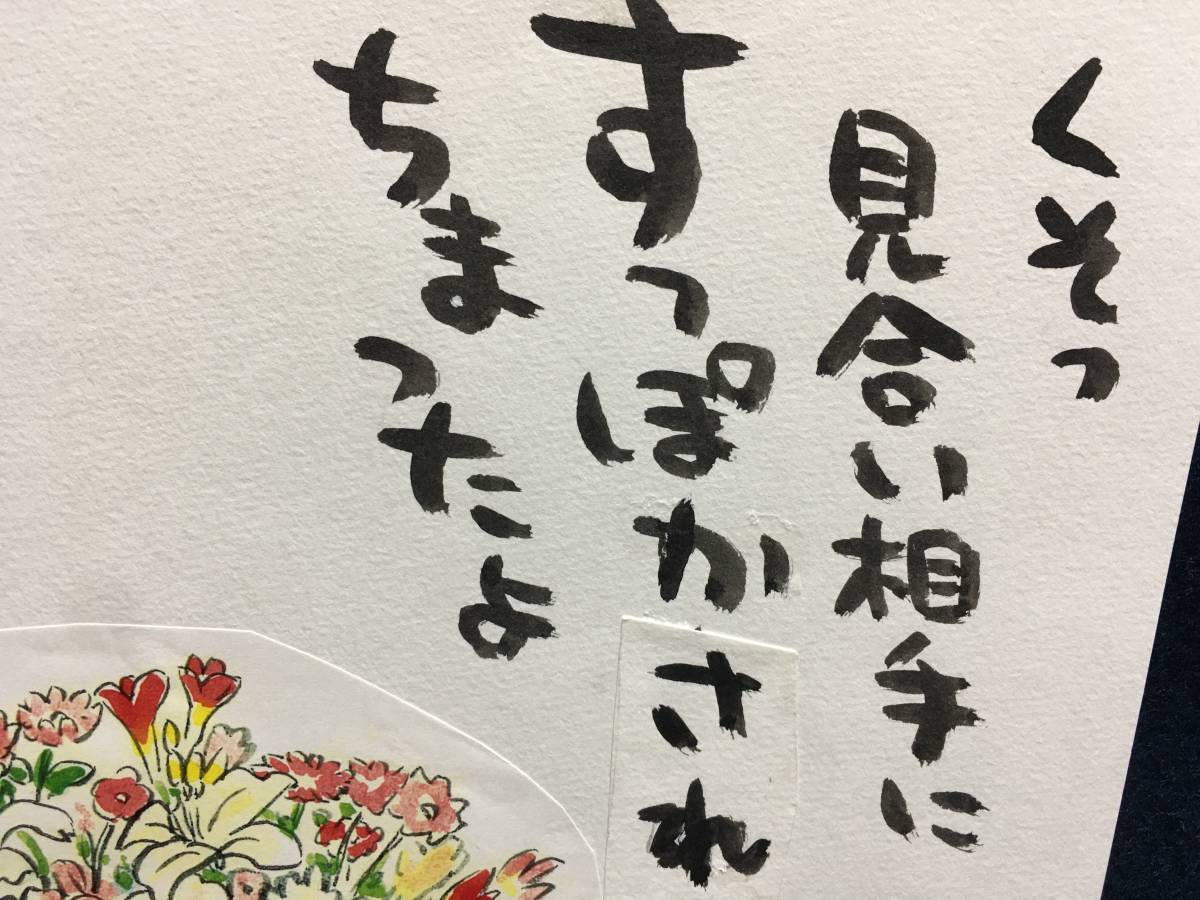 くそっ
見合い相手に
すっぽかされ
ちまったよ